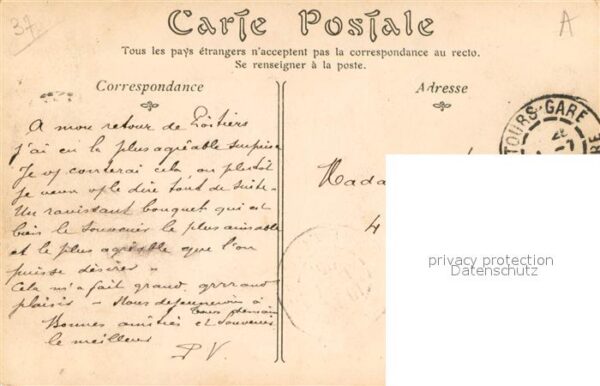 37
A
Carte Postale
Tous les pays étrangers n'acceptent pas la correspondance au recto.
Se renseigner à la poste.
Correspondance
Adresse
TOURS-GARE
A mon retour de Poitiers
j'ai eu la plus agréable surprise
Je vs conterai cela, ou plutôt
je veux vs le dire tout de suite -
Un ravissant bouquet qui est
bien le souvenir le plus aimable
et le plus agréable que l'on
puisse désirer -
Cela m'a fait grand, grrrand
plaisir - Nous déjeunerons à
Tours demain
Bonnes amitiés et souvenir
le meilleur
PV
Mada
4
privacy protection
Datenschutz